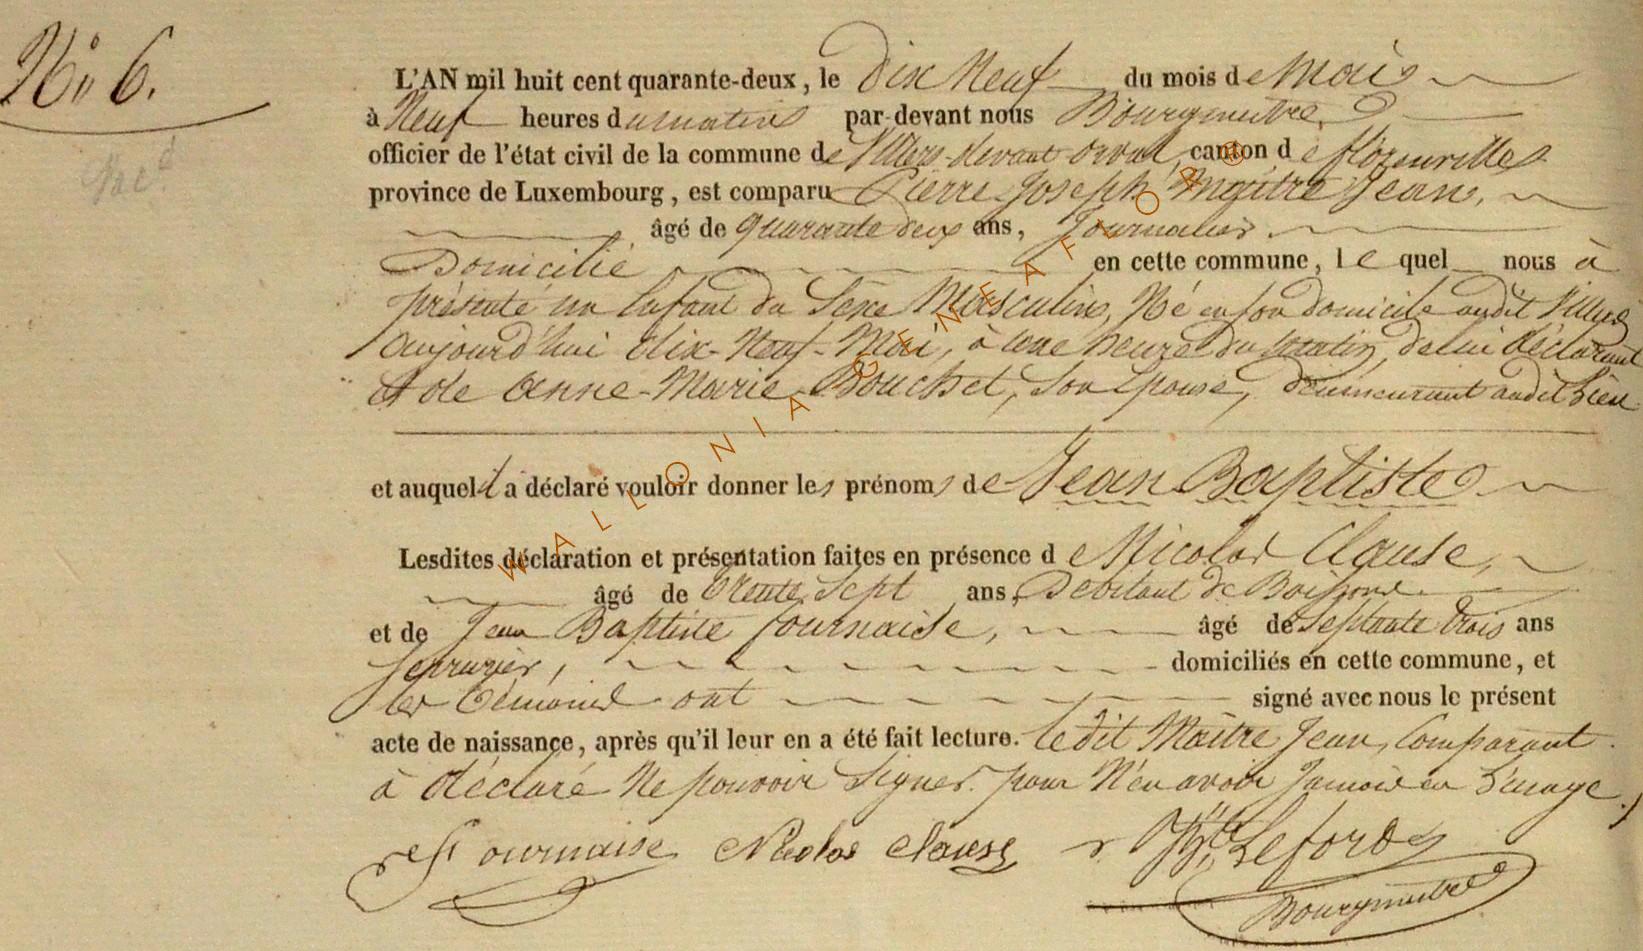 N° 6.
L'AN mil huit cent quarante-deux, le Dix Neuf du mois de Mai
à Neuf heures du matin par-devant nous Bourgmestre
officier de l'état civil de la commune de Villers-devant orval, canton de florenville
province de Luxembourg, est comparu Pierre Joseph Maître Jean,
âgé de quarante deux ans, Journalier.
Domicilié en cette commune, lequel nous à
présenté un Enfant du Sexe Masculin, Né en son domicile audit Villers
aujourd'hui dix-Neuf-Mai, à une heure du matin, de lui déclarant
et de Anne-Marie Bouchet, son Epouse, demeurant audit Lieu
et auquel il a déclaré vouloir donner les prénoms de Jean Baptiste
Lesdites déclaration et présentation faites en présence de Nicolas Clause,
âgé de trente Sept ans, Debitant de Boissons
et de Jean Baptiste fournaise, âgé de Septante trois ans
Serrurier, domiciliés en cette commune, et
les témoins ont signé avec nous le présent
acte de naissance, après qu'il leur en a été fait lecture. ledit Maître Jean, Comparant
à déclaré Ne pouvoir Signer. pour N'en avoir Jamais eu L'usage.
fournaise Nicolas Clause Leford
Bourgmestre
WALLONIA GENEAFLOR®